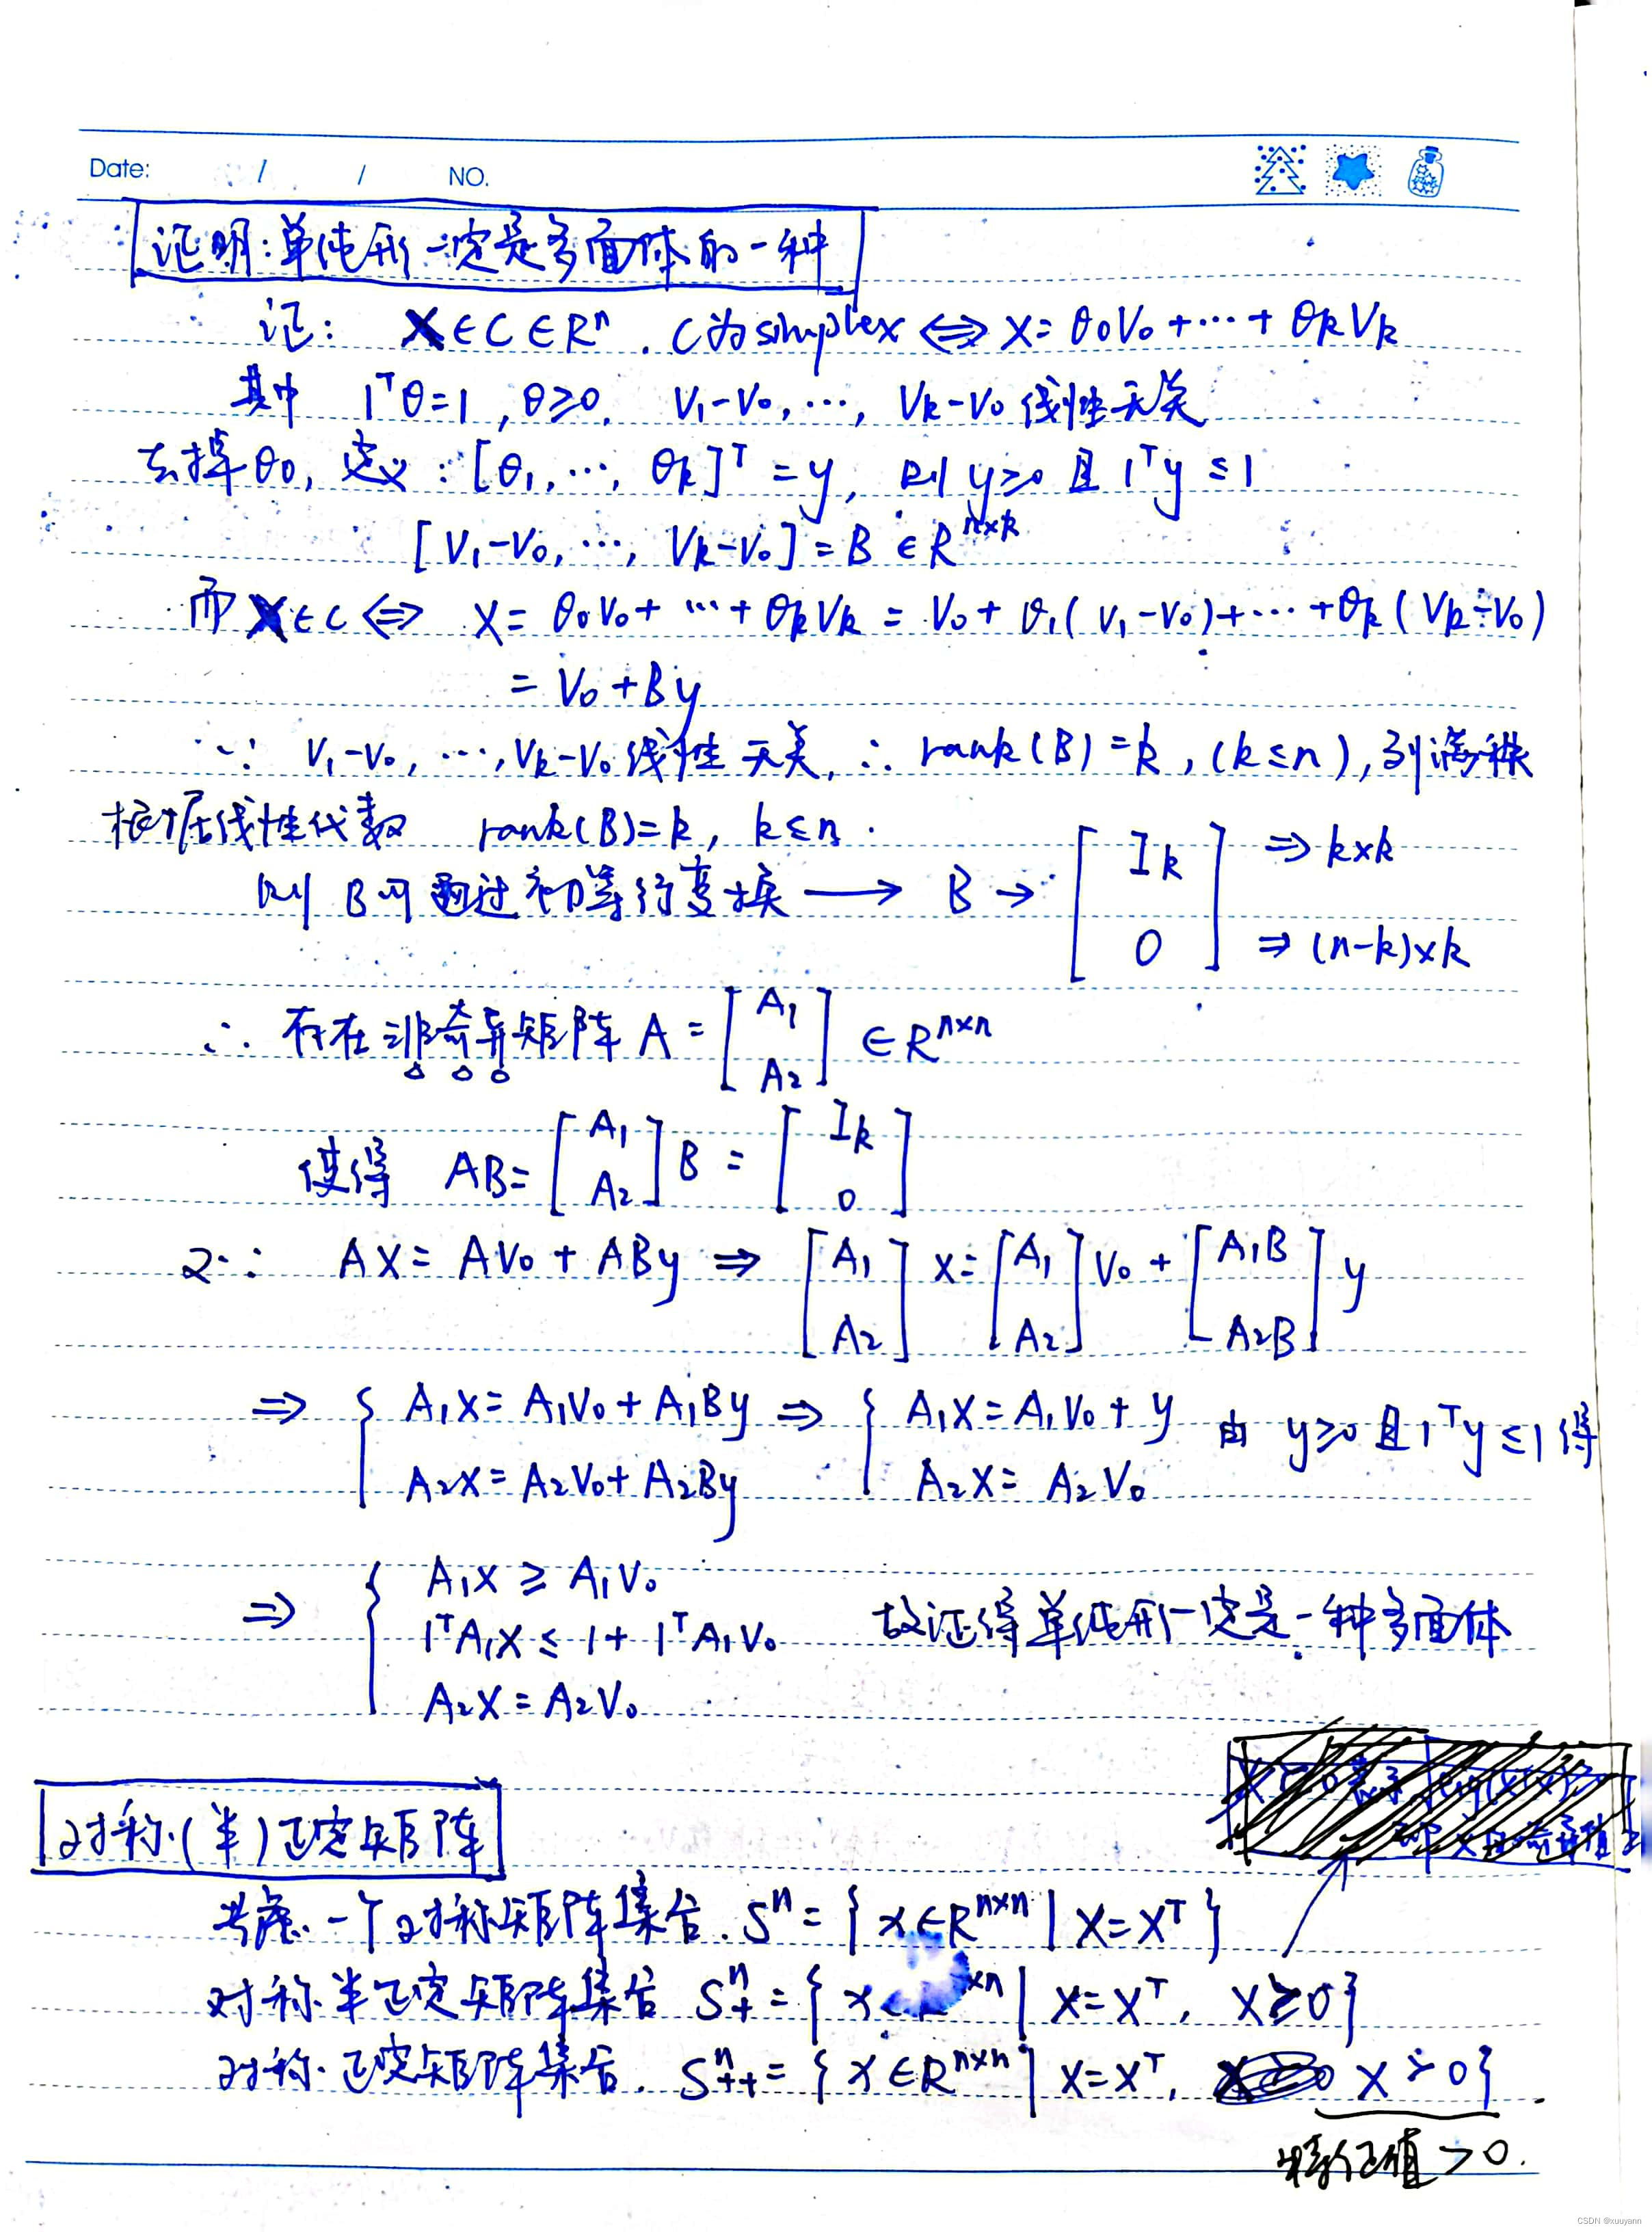 Date: / / NO.
证明:单纯形一定是多面体的一种
证: X∈C∈Rⁿ. C为simplex ⇔ X= θ₀V₀+⋯+θₖVₖ
其中 1ᵀθ=1, θ≥0, V₁-V₀, ⋯, Vₖ-V₀ 线性无关
去掉θ₀, 定义: [θ₁, ⋯, θₖ]ᵀ = y, 则 y≥0 且 1ᵀy ≤ 1
[V₁-V₀, ⋯, Vₖ-V₀] = B ∈ Rⁿˣᵏ
而 X∈C ⇔ X= θ₀V₀+ ⋯ + θₖVₖ = V₀ + θ₁(V₁-V₀)+⋯+θₖ(Vₖ-V₀)
= V₀ + By
∵ V₁-V₀, ⋯, Vₖ-V₀ 线性无关, ∴ rank(B)=k, (k≤n), 列满秩
根据线性代数 rank(B)=k, k≤n.
则 B可通过初等行变换 → B → [Iₖ 0] ⇒ k×k ⇒ (n-k)×k
∴ 存在非奇异矩阵 A = [A₁ A₂] ∈ Rⁿˣⁿ
使得 AB= [A₁ A₂] B = [Iₖ 0]
又∵ AX = AV₀ + ABy ⇒ [A₁ A₂] X= [A₁ A₂] V₀ + [A₁B A₂B] y
⇒ { A₁X = A₁V₀ + A₁By ⇒ { A₁X = A₁V₀ + y 由 y≥0 且 1ᵀy ≤1 得
A₂X = A₂V₀+ A₂By A₂X = A₂V₀
⇒ { A₁X ≥ A₁V₀
1ᵀA₁X ≤ 1+ 1ᵀA₁V₀ 故证得单纯形一定是一种多面体
A₂X = A₂V₀
对称(半)正定矩阵
考虑一个对称矩阵集合. Sⁿ = { x∈Rⁿˣⁿ | X=Xᵀ }
对称半正定矩阵集合 Sⁿ₊ = { x ˣⁿ | X=Xᵀ, X≥0}
对称正定矩阵集合. Sⁿ₊₊ = { x∈Rⁿˣⁿ | X=Xᵀ, X≻0}
特征值>0.
CSDN @xuuyann